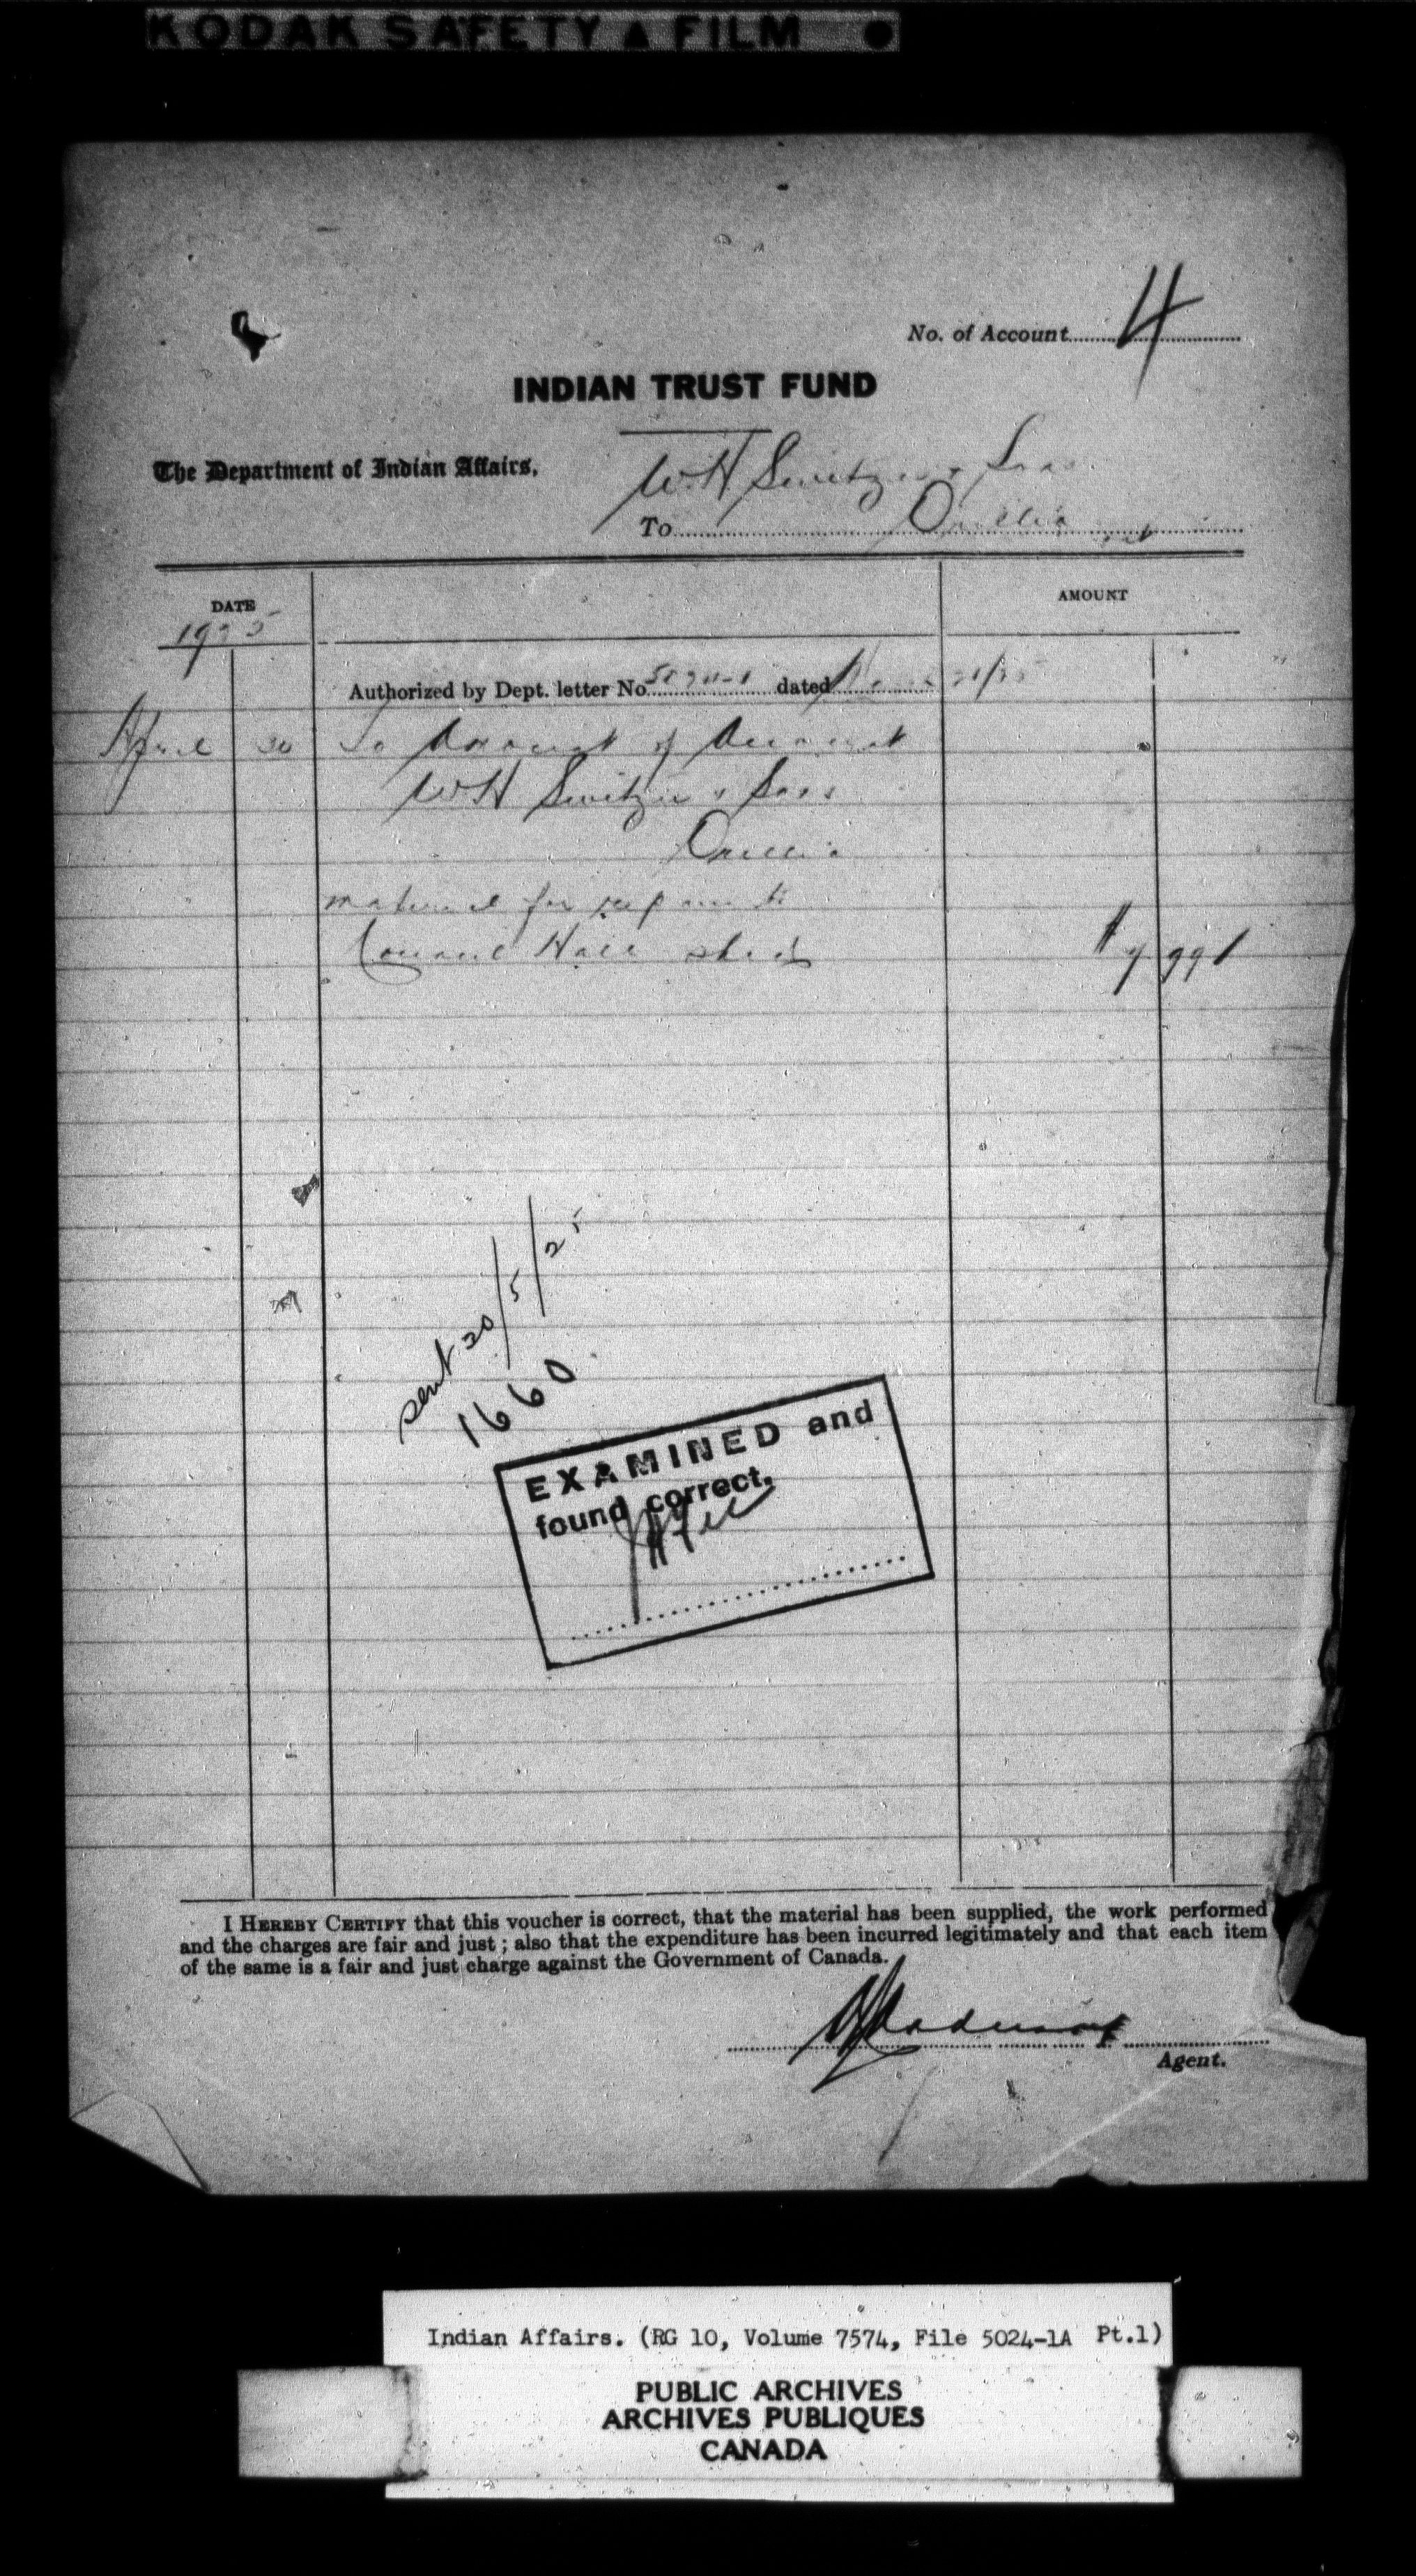 KODAK SAFETY ▲ FILM
No. of Account 4
INDIAN TRUST FUND
The Department of Indian Affairs,
W.H Switzer & Sons
To Orillia
DATE
AMOUNT
1925
Authorized by Dept. letter No. dated
April 30 To Amount of Account
W H Switzer & Sons
Orillia
material for repairs to
Council Hall shed
sent 20/5/25
1660
EXAMINED and
found correct.
I HEREBY CERTIFY that this voucher is correct, that the material has been supplied, the work performed
and the charges are fair and just; also that the expenditure has been incurred legitimately and that each item
of the same is a fair and just charge against the Government of Canada.
Agent.
Indian Affairs. (RG 10, Volume 7574, File 5024-1A Pt.1)
PUBLIC ARCHIVES
ARCHIVES PUBLIQUES
CANADA